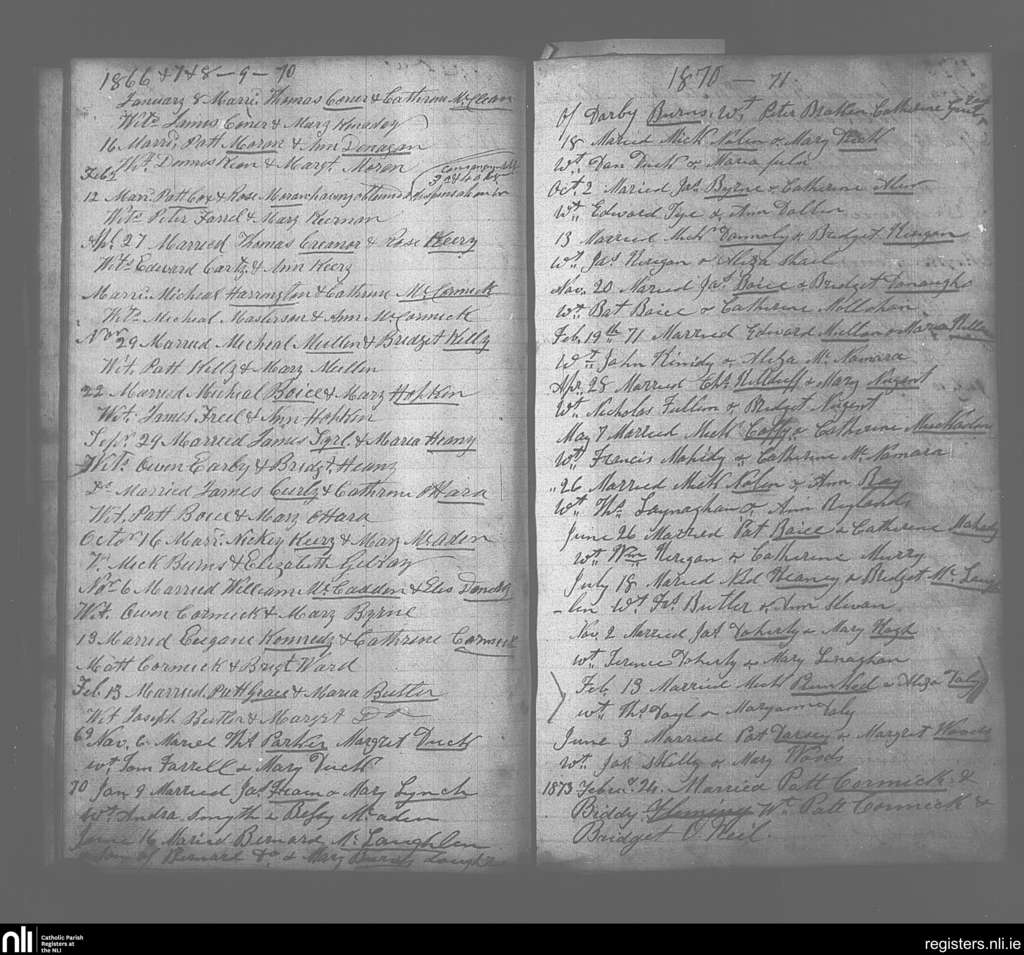 1866 & 7 & 8 - 9 - 70
January 8 Marri. Thomas Coner & Cathrine McClean
Wits James Coner & Mary
16 Marrd. Patt Moran & Ann Donagan
Wt. Dennis & Margt. Moren
Feby
12 Marri. Patt Cox & Rose Moran having obtained dispensation in
consanguinity
Wits Peter Farrel & Mary Kiernan
Apl 27 Married Thomas Creanor & Rose Keery
Wits Edward Carty & Ann Keery
Marri. Micheal Harrington & Cathrine McCormick
Wits Micheal Masterson & Ann McCormick
Novr 29 Married Micheal Mullen & Bridget Killy
Wit. Patt Killy & Mary Mullen
22 Married Micheal Boice & Mary Hopkin
Wit. James Freel & Ann Hopkin
Sepr. 29 Married James & Maria Heany
Wits. Owen Earby & Bridgt. Heany
Do Married James Curly & Cathrine OHara
Wit. Patt Boice & Mary OHara
Octor 16 Marri. Nickey Keery & Mary McAden
Wt. Mick Burns & Elizabeth Gilray
Nov. 6 Married William McCadden & Elis
Wit. Owen Cormick & Mary Byrne
13 Married Eugane Kennedy & Cathrine Cormick
Matt Cormick & Brigt Ward
Feb 13 Married Patt Grace & Maria Butler
Wit Joseph Butler & Margret Do
69 Nov. 6 Maried Ths. Parker Margret Duck
wt. Tom Farrell & Mary Duck
70 Jan 9 Married Jas. & Mary Lynch
wt. Andra. Smyth & Betsy McAden
June 16 Maried Bernard McLaughlen
of Bernard Do & Mary
1870 - 71
of Darby Burns. Wt. Peter Bracken Catherine
18 Maried Mick Nolen & Mary Duck
wt. Dan Duck & Maria
Oct 2 Maried Jas. Byrne & Catherine
wt. Edward Tye & Ann Dallen
13 Married Mick & Bridget Kirigan
wt. Jas. Kirigan & Eliza
Nov. 20 Maried Jas. Boice & Bridget
wt. Bat Boice & Catherine
Feb. 19th 71 Married Edward Mullen & Maria
wt. John Kinidy & Eliza McNamara
Apr. 28 Married Chs. Killduff & Mary Nugent
wt. Nicholas Fallon & Bridget Nugent
May 7 Married Mick & Catherine
wt. Francis & Catherine McNamara
" 26 Married Mick Nolen & Ann Ray
wt. Ths. & Ann
June 26 Married Pat Boice & Catherine
wt. Wm. Kirigan & Catherine Murry
July 18 Maried Ned Heaney & Bridget McLaugh
-lin wt. Fs. Butler & Ann
Nov. 2 Married Jas. Doherty & Mary
wt. Terence Doherty & Mary
Feb. 13 Married Mick & Eliza Daly
wt. Ths. & Maryanne Daly
June 3 Married Pat & Margret Woods
wt. Jas. Skelly & Mary Woods
1873 Febry. 24. Married Patt Cormick &
Biddy Fleming Wt. Patt Cormick &
Bridget O'Neil.
nli
Catholic Parish
Registers at
the NLI
registers.nli.ie